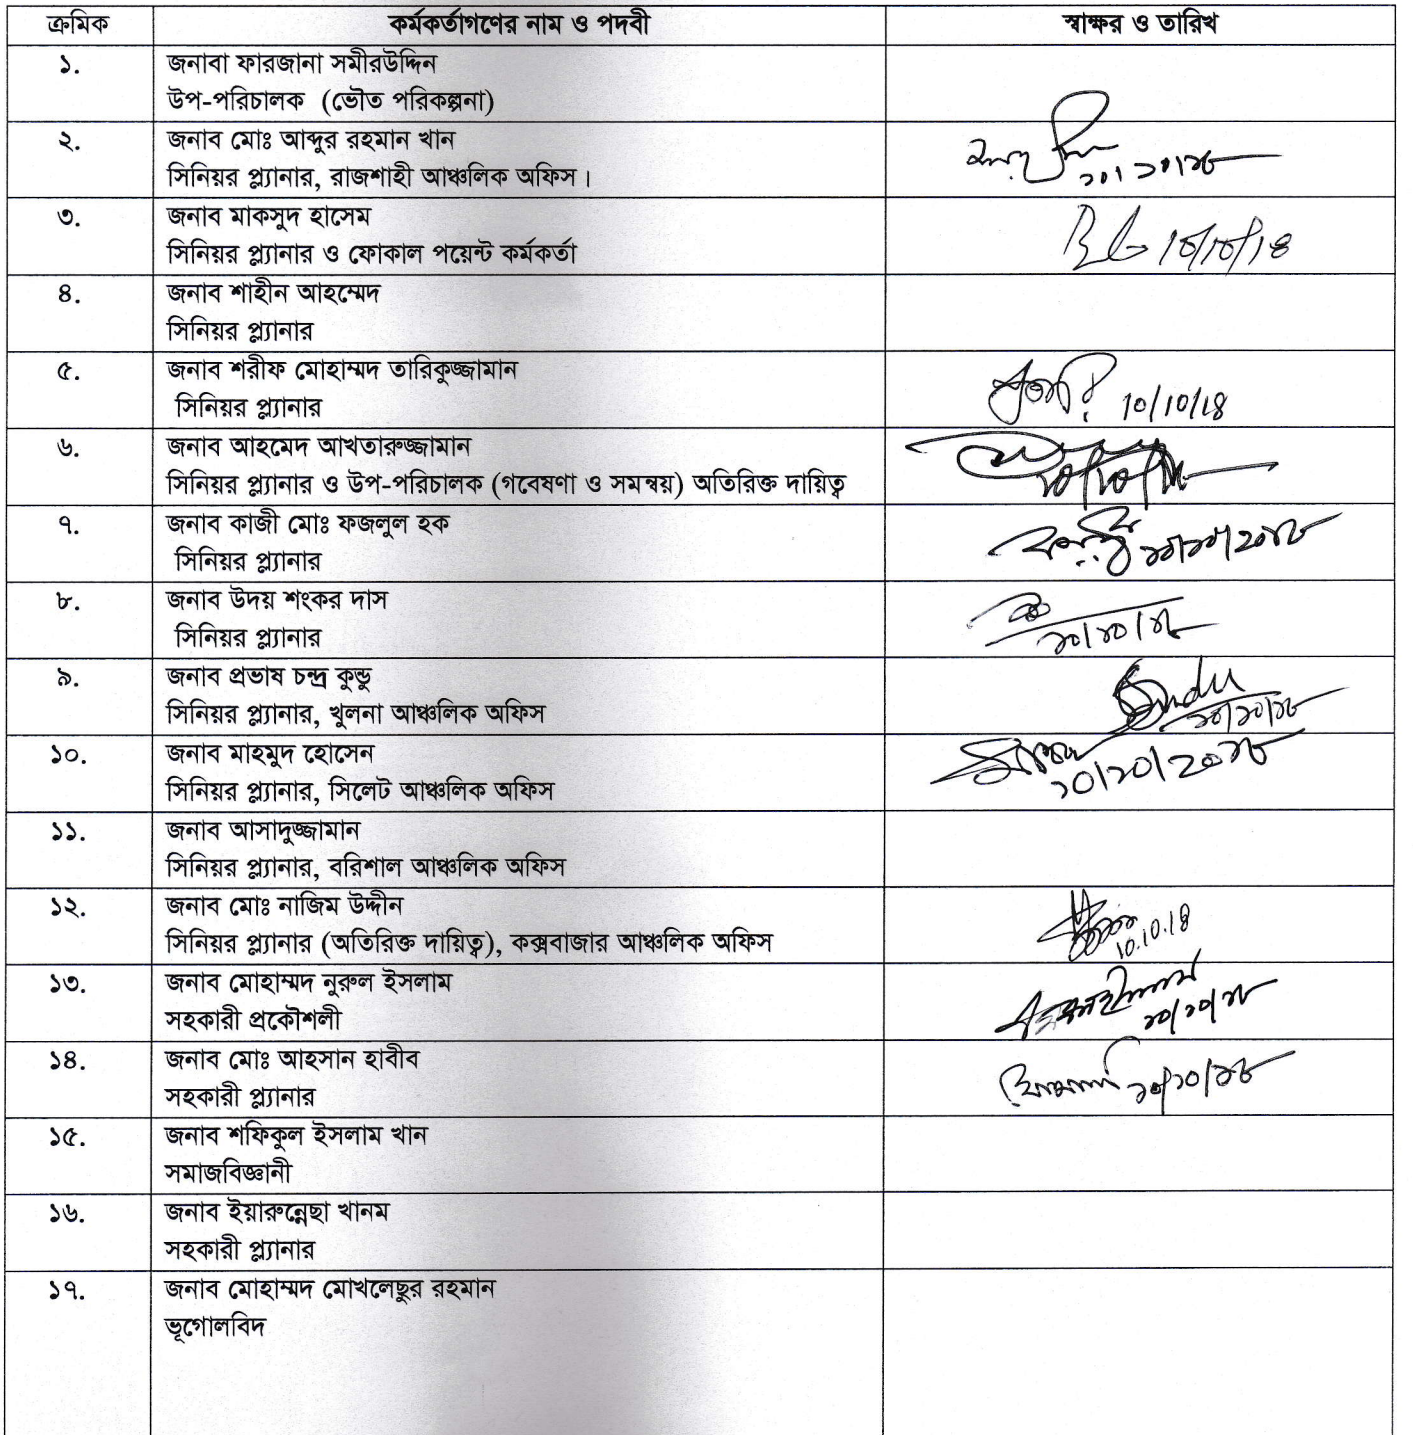 ক্রমিক কর্মকর্তাগণের নাম ও পদবী স্বাক্ষর ও তারিখ
১. জনাবা ফারজানা সমীরউদ্দিন
উপ-পরিচালক (ভৌত পরিকল্পনা)
২. জনাব মোঃ আব্দুর রহমান খান
সিনিয়র প্ল্যানার, রাজশাহী আঞ্চলিক অফিস। ১০/১০/১৮
৩. জনাব মাকসুদ হাসেম
সিনিয়র প্ল্যানার ও ফোকাল পয়েন্ট কর্মকর্তা 10/10/18
৪. জনাব শাহীন আহম্মেদ
সিনিয়র প্ল্যানার
৫. জনাব শরীফ মোহাম্মদ তারিকুজ্জামান
সিনিয়র প্ল্যানার 10/10/18
৬. জনাব আহমেদ আখতারুজ্জামান
সিনিয়র প্ল্যানার ও উপ-পরিচালক (গবেষণা ও সমন্বয়) অতিরিক্ত দায়িত্ব
৭. জনাব কাজী মোঃ ফজলুল হক
সিনিয়র প্ল্যানার ১০/১০/২০১৮
৮. জনাব উদয় শংকর দাস
সিনিয়র প্ল্যানার ১০/১০/১৮
৯. জনাব প্রভাষ চন্দ্র কুন্ডু
সিনিয়র প্ল্যানার, খুলনা আঞ্চলিক অফিস ১০/১০/১৮
১০. জনাব মাহমুদ হোসেন
সিনিয়র প্ল্যানার, সিলেট আঞ্চলিক অফিস ১০/১০/২০১৮
১১. জনাব আসাদুজ্জামান
সিনিয়র প্ল্যানার, বরিশাল আঞ্চলিক অফিস
১২. জনাব মোঃ নাজিম উদ্দীন
সিনিয়র প্ল্যানার (অতিরিক্ত দায়িত্ব), কক্সবাজার আঞ্চলিক অফিস 10.10.18
১৩. জনাব মোহাম্মদ নুরুল ইসলাম
সহকারী প্রকৌশলী ১০/১০/১৮
১৪. জনাব মোঃ আহসান হাবীব
সহকারী প্ল্যানার ১০/১০/১৮
১৫. জনাব শফিকুল ইসলাম খান
সমাজবিজ্ঞানী
১৬. জনাব ইয়ারুন্নেছা খানম
সহকারী প্ল্যানার
১৭. জনাব মোহাম্মদ মোখলেছুর রহমান
ভূগোলবিদ